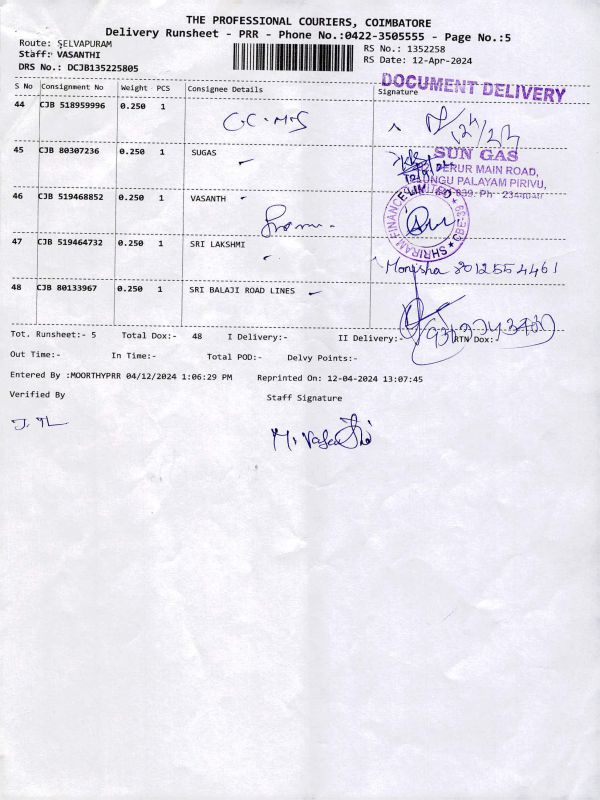 THE PROFESSIONAL COURIERS, COIMBATORE
Delivery Runsheet - PRR - Phone No.:0422-3505555 - Page No.:5
Route: SELVAPURAM
RS No.: 1352258
Staff: VASANTHI
RS Date: 12-Apr-2024
DRS No.: DCJB135225805
DOCUMENT DELIVERY
S No Consignment No Weight PCS Consignee Details Signature
44 CJB 518959996 0.250 1
45 CJB 80307236 0.250 1 SUGAS
SUN GAS
PERUR MAIN ROAD,
PALAYAM PIRIVU,
46 CJB 519468852 0.250 1 VASANTH
SHRIRAM FINANCE LIMITED
47 CJB 519464732 0.250 1 SRI LAKSHMI
Monisha 8012554461
48 CJB 80133967 0.250 1 SRI BALAJI ROAD LINES
Tot. Runsheet:- 5 Total Dox:- 48 I Delivery:- II Delivery:- RTN Dox:-
Out Time:- In Time:- Total POD:- Delvy Points:-
Entered By :MOORTHYPRR 04/12/2024 1:06:29 PM Reprinted On: 12-04-2024 13:07:45
Verified By Staff Signature